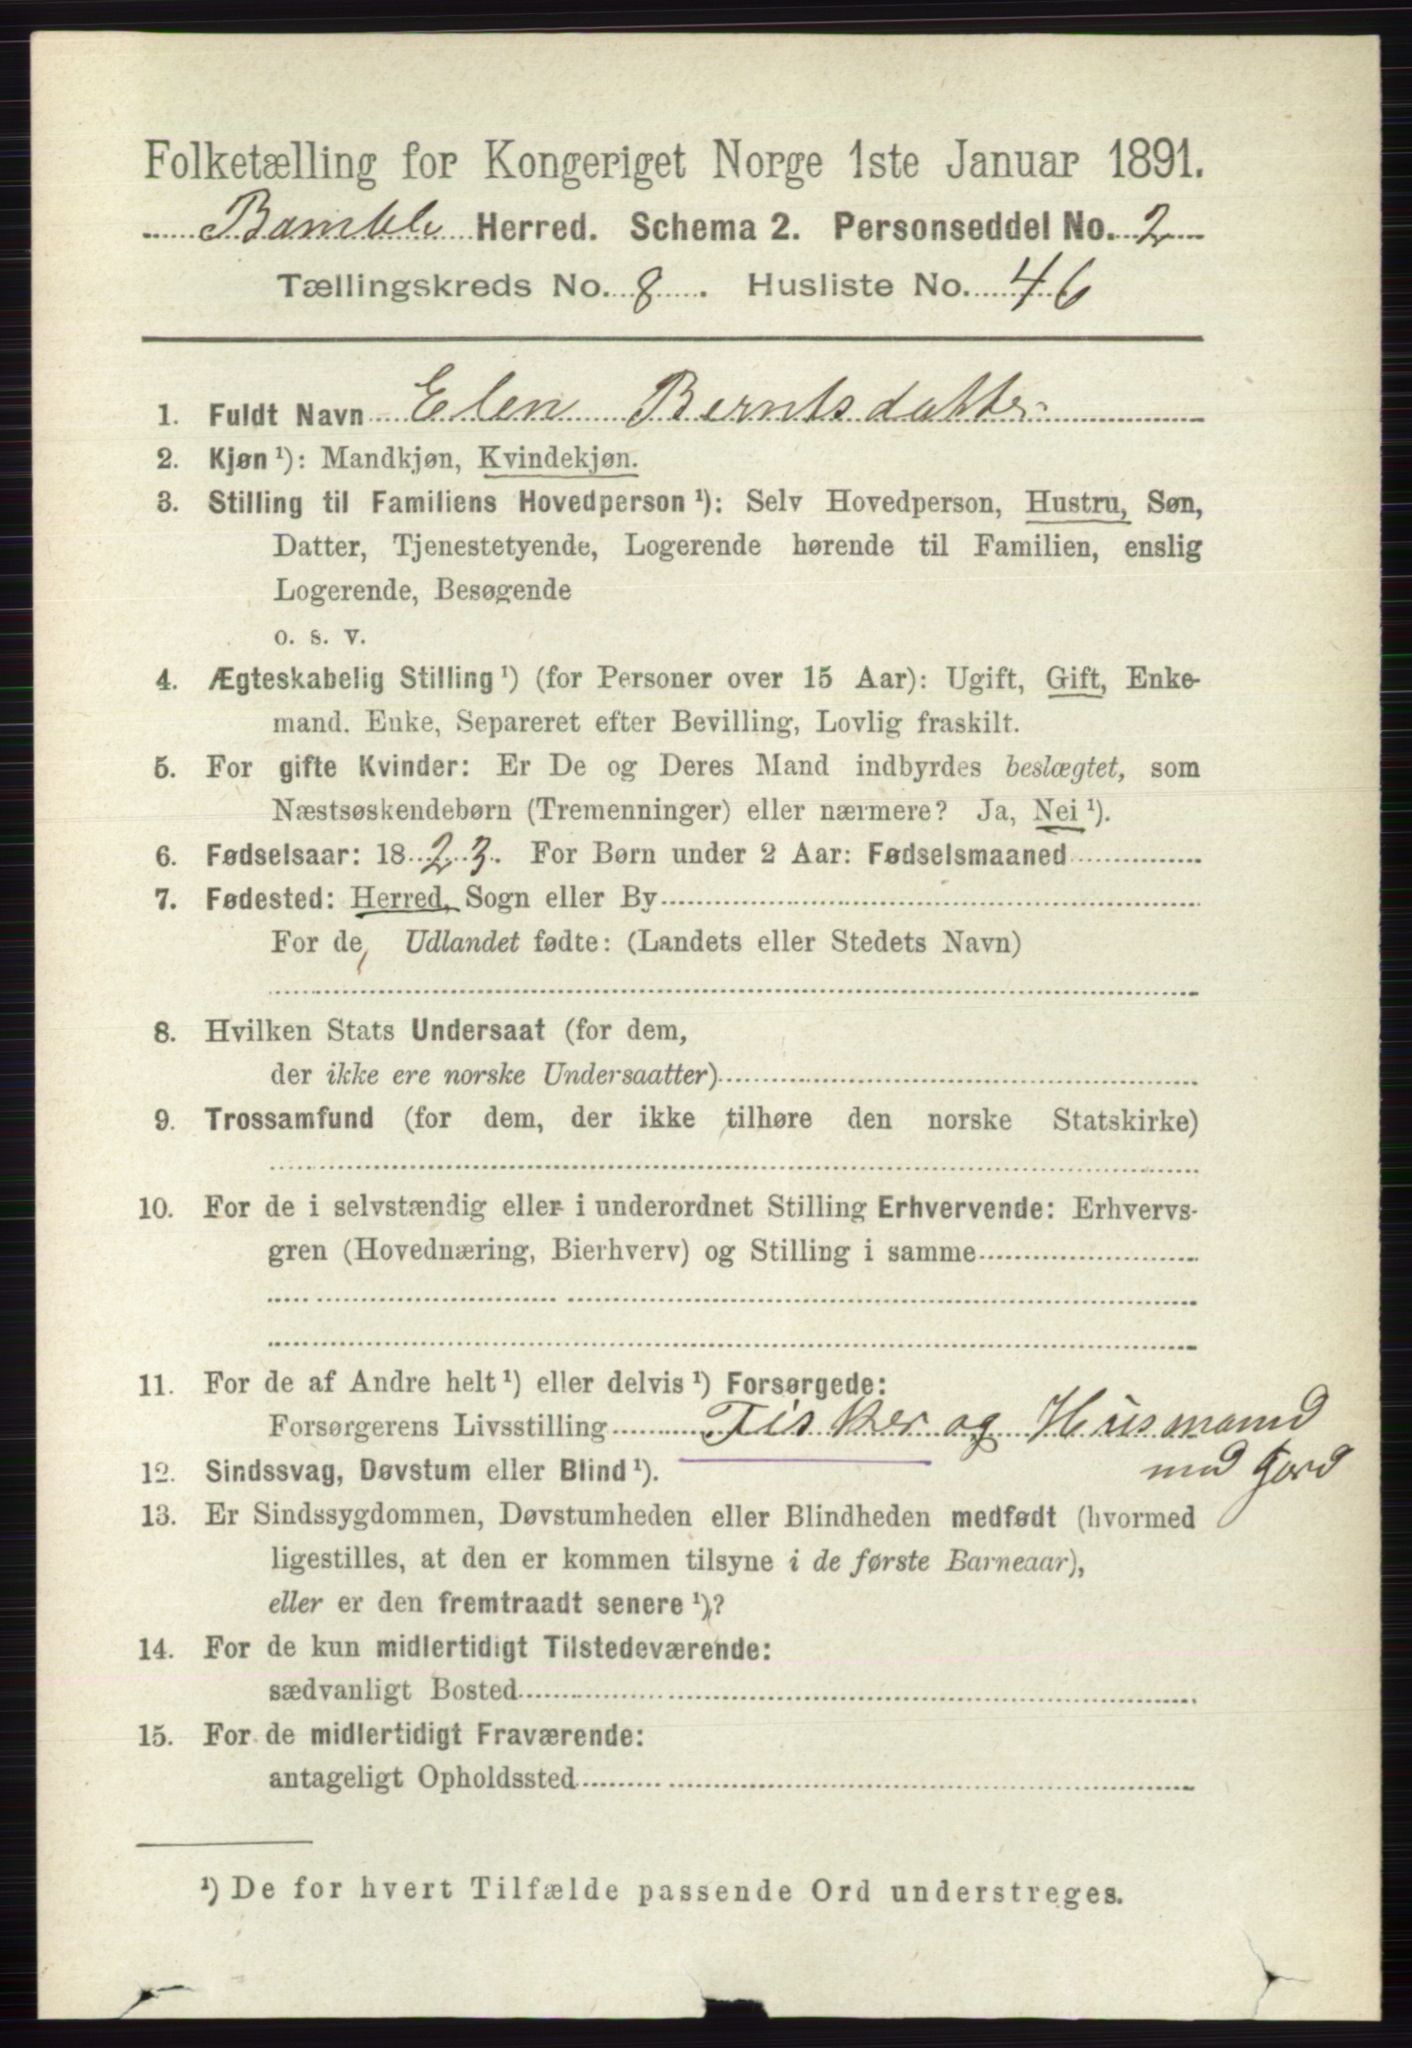 Folketælling for Kongeriget Norge 1ste Januar 1891.
Bamble Herred. Schema 2. Personseddel No. 2
Tællingskreds No. 8. Husliste No. 46
1. Fuldt Navn Elen Berntsdatter
2. Kjøn ¹): Mandkjøn, Kvindekjøn.
3. Stilling til Familiens Hovedperson ¹): Selv Hovedperson, Hustru, Søn,
Datter, Tjenestetyende, Logerende hørende til Familien, enslig
Logerende, Besøgende
o. s. v.
4. Ægteskabelig Stilling ¹) (for Personer over 15 Aar): Ugift, Gift, Enke-
mand. Enke, Separeret efter Bevilling, Lovlig fraskilt.
5. For gifte Kvinder: Er De og Deres Mand indbyrdes beslægtet, som
Næstsøskendebørn (Tremenninger) eller nærmere? Ja, Nei ¹).
6. Fødselsaar: 1823. For Børn under 2 Aar: Fødselsmaaned
7. Fødested: Herred, Sogn eller By
For de, Udlandet fødte: (Landets eller Stedets Navn)
8. Hvilken Stats Undersaat (for dem,
der ikke ere norske Undersaatter)
9. Trossamfund (for dem, der ikke tilhøre den norske Statskirke)
10. For de i selvstændig eller i underordnet Stilling Erhvervende: Erhvervs-
gren (Hovednæring, Bierhverv) og Stilling i samme
11. For de af Andre helt ¹) eller delvis ¹) Forsørgede:
Forsørgerens Livsstilling Fisker og Husmand
med Jord
12. Sindssvag, Døvstum eller Blind ¹).
13. Er Sindssygdommen, Døvstumheden eller Blindheden medfødt (hvormed
ligestilles, at den er kommen tilsyne i de første Barneaar),
eller er den fremtraadt senere ¹)?
14. For de kun midlertidigt Tilstedeværende:
sædvanligt Bosted
15. For de midlertidigt Fraværende:
antageligt Opholdssted
¹) De for hvert Tilfælde passende Ord understreges.